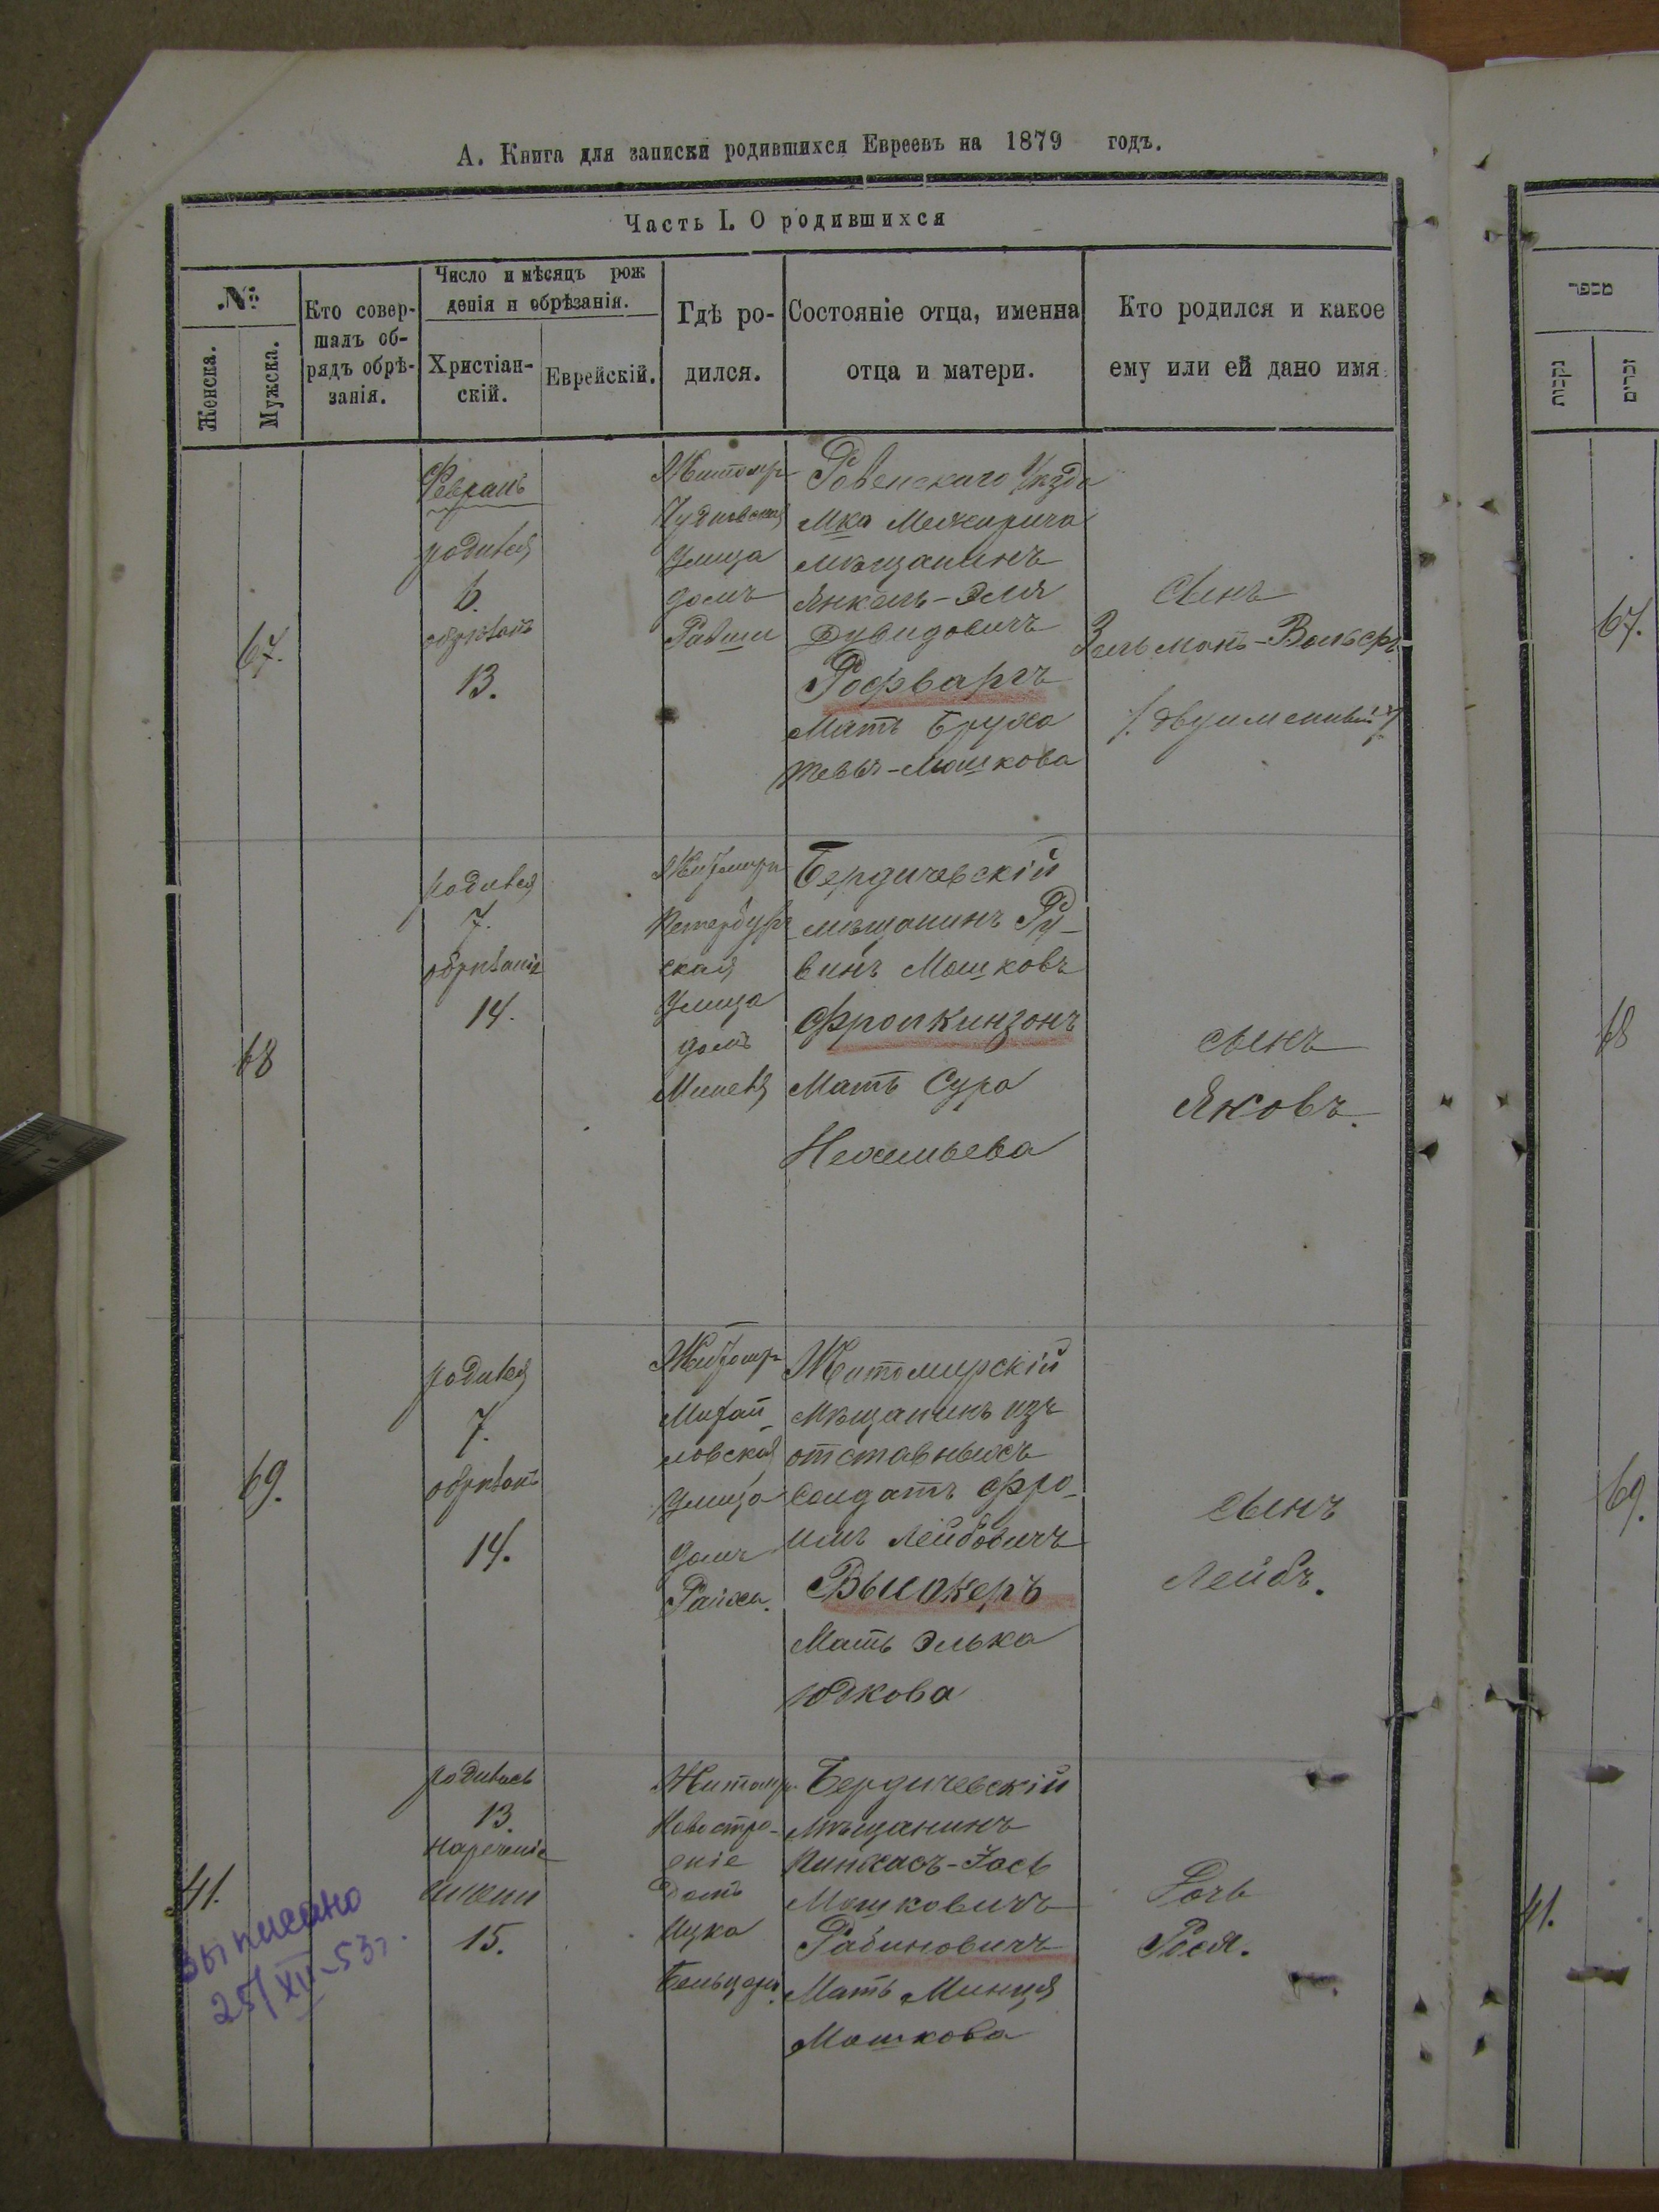 А. Книга для записки родившихся Евреевъ на 1879 годъ.
Часть I. О родившихся
№
Женска.
Мужска.
Кто совер-
шалъ об-
рядъ обрѣ-
занія.
Число и мѣсяцъ рож
денія и обрѣзанія.
Христіан-
скій.
Еврейскій.
Гдѣ ро-
дился.
Состояніе отца, именна
отца и матери.
Кто родился и какое
ему или ей дано имя
מספר
נקבות
זכרים
67.
Февраль
родився
6.
обрѣзанъ
13.
Житомір
Чудновская
улица
домъ
Ровенскаго Уѣзда
Мка Межирича
мѣщанинъ
Янкель-Эля
Дувидовичъ
Рофваргъ
Мать Бруха
Мошкова
Сынъ
Зельманъ-Вольфъ
/. двуименный ./
67.
68
родився
7.
обрѣзаніе
14.
Житомиръ
Петербург
ская
улица
домъ
Бердичевскій
мѣщанинъ Ру-
винъ Мошковъ
Фроикинзонъ
Мать Сура
Нехемьева
сынъ
Яковъ.
68
69.
родився
7.
обрѣзанъ
14.
Житомр
Михай-
ловская
улица
домъ
Райха.
Житомирскій
Мѣщанинъ изъ
отставныхъ
Солдатъ Фро-
имъ Лейбовичъ
Мать Элька
Юдкова
сынъ
Лейбъ.
69.
41.
родилась
13.
Нареченіе
имени
15.
Житомр.
Новостро-
еніе
Домъ
Ицка
Бердичевскій
Мѣщанинъ
Пинхасъ-Іось
Мошковичъ
Рабиновичъ
Мать Минця
Мошкова
Дочь
Рося.
41.
выписано
25/XII-53г.